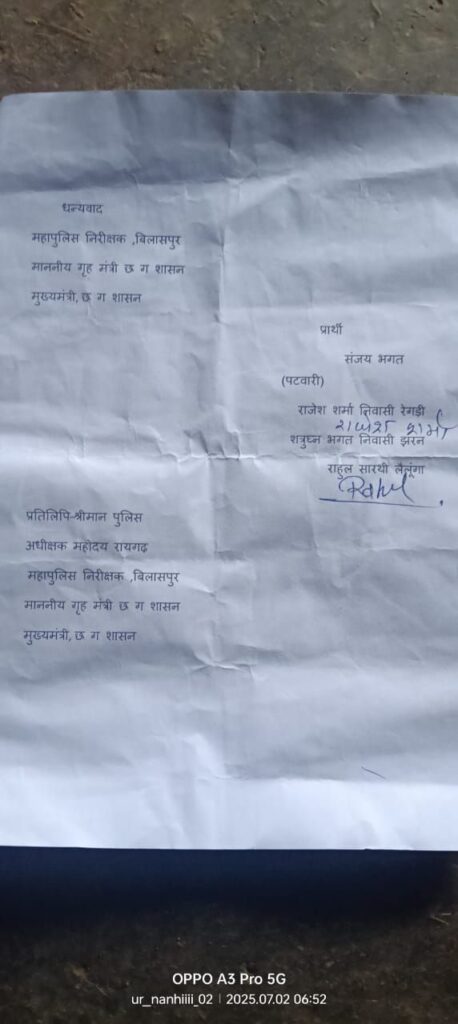 धन्यवाद
महापुलिस निरीक्षक ,बिलासपुर
माननीय गृह मंत्री छ ग शासन
मुख्यमंत्री, छ ग शासन
प्रार्थी
संजय भगत
(पटवारी)
राजेश शर्मा निवासी रेगड़ी
राजेश शर्मा
शत्रुघ्न भगत निवासी झरन
राहुल सारथी लैलूंगा
Rahul
प्रतिलिपि-श्रीमान पुलिस
अधीक्षक महोदय रायगढ़
महापुलिस निरीक्षक ,बिलासपुर
माननीय गृह मंत्री छ ग शासन
मुख्यमंत्री, छ ग शासन
OPPO A3 Pro 5G
ur_nanhiiii_02 | 2025.07.02 06:52